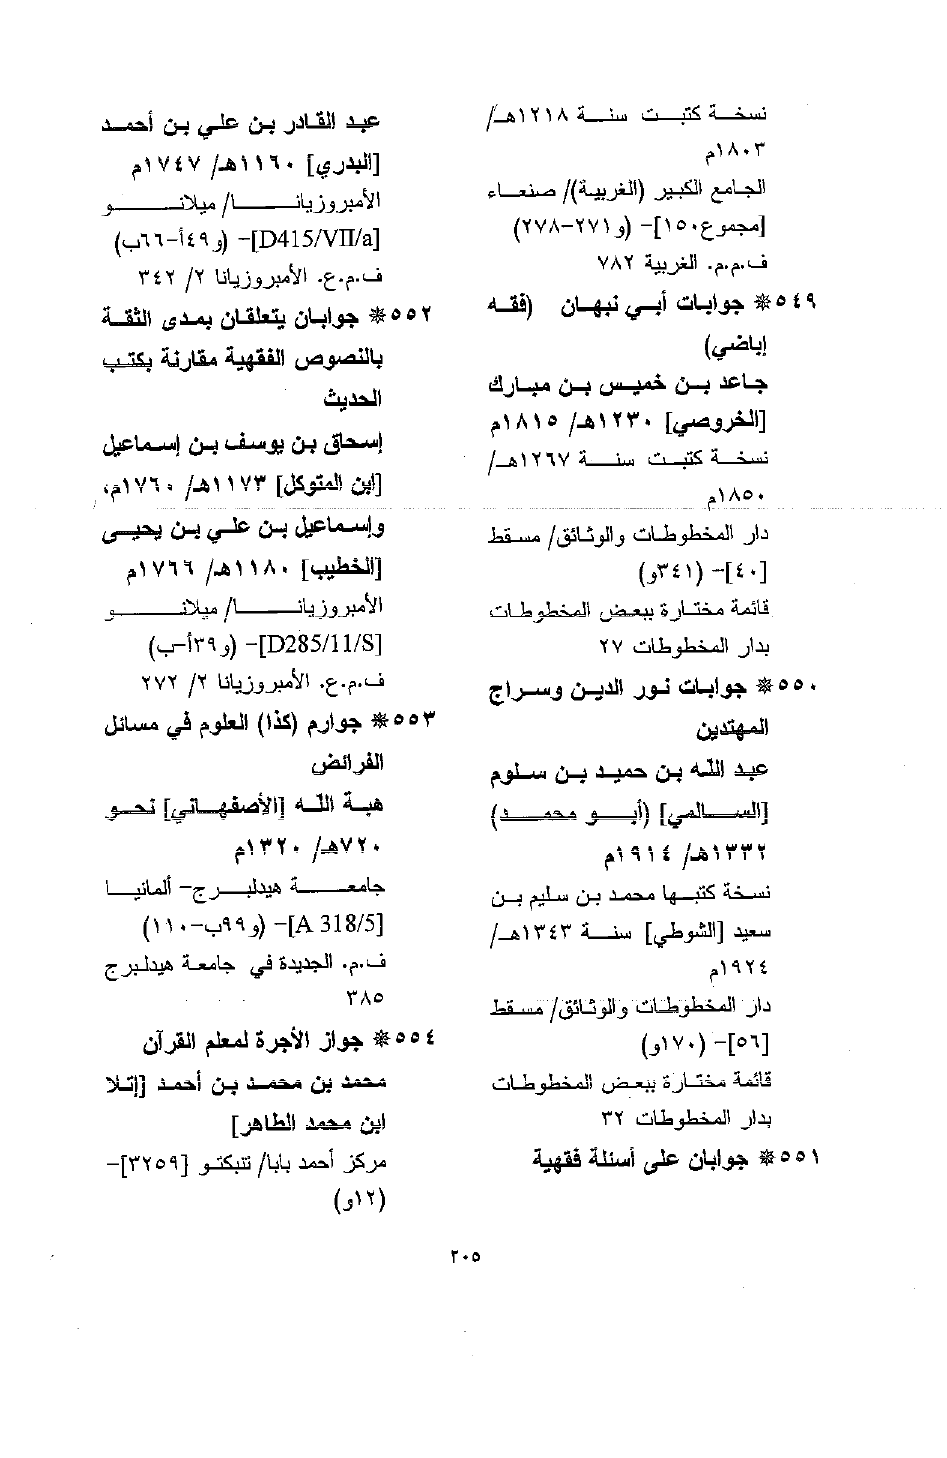 نسخة كتبت سنة ١٢١٨هـ/
١٨٠٣م
الجامع الكبير (الغربية)/ صنعاء
[مجموع١٥٠]- (و٢٧١-٢٧٨)
ف.م.م. الغربية ٧٨٢
٥٤٩* جوابات أبي نبهان (فقه
إباضي)
جاعد بن خميس بن مبارك
[الخروصي] ١٢٣٠هـ/ ١٨١٥م
نسخة كتبت سنة ١٢٦٧هـ/
١٨٥٠م
دار المخطوطات والوثائق/ مسقط
[٤٠]- (٣٤١و)
قائمة مختارة ببعض المخطوطات
بدار المخطوطات ٢٧
٥٥٠* جوابات نور الدين وسراج
المهتدين
عبد الله بن حميد بن سلوم
[السالمي] (أبو محمد)
١٣٣٢هـ/ ١٩١٤م
نسخة كتبها محمد بن سليم بن
سعيد [الشوطي] سنة ١٣٤٣هـ/
١٩٢٤م
دار المخطوطات والوثائق/ مسقط
[٥٦]- (١٧٠و)
قائمة مختارة ببعض المخطوطات
بدار المخطوطات ٣٢
٥٥١* جوابان على أسئلة فقهية
عبد القادر بن علي بن أحمد
[البدري] ١١٦٠هـ/ ١٧٤٧م
الأمبروزيانا/ ميلانو
[D415/VII/a]- (و٤٩أ-٦٦ب)
ف.م.ع. الأمبروزيانا ٢/ ٣٤٢
٥٥٢* جوابان يتعلقان بمدى الثقة
بالنصوص الفقهية مقارنة بكتب
الحديث
إسحاق بن يوسف بن إسماعيل
[ابن المتوكل] ١١٧٣هـ/ ١٧٦٠م،
وإسماعيل بن علي بن يحيى
[الخطيب] ١١٨٠هـ/ ١٧٦٦م
الأمبروزيانا/ ميلانو
[D285/11/S]- (و٣٩أ-ب)
ف.م.ع. الأمبروزيانا ٢/ ٢٧٢
٥٥٣* جوارم (كذا) العلوم في مسائل
الفرائض
هبة الله [الأصفهاني] نحو
٧٢٠هـ/ ١٣٢٠م
جامعة هيدلبرج- ألمانيا
[A 318/5]- (و٩٩ب-١١٠)
ف.م. الجديدة في جامعة هيدلبرج
٣٨٥
٥٥٤* جواز الأجرة لمعلم القرآن
محمد بن محمد بن أحمد [إتلا
ابن محمد الطاهر]
مركز أحمد بابا/ تنبكتو [٣٢٥٩]-
(١٢و)
٢٠٥